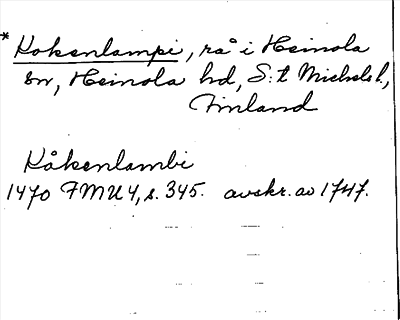 *Kokenlampi, rå i Heinola
sn, Heinola hd, S:t Michels l.,
Finland
Kåkenlambi
1470 FMU 4, s. 345. avskr. av 1747.